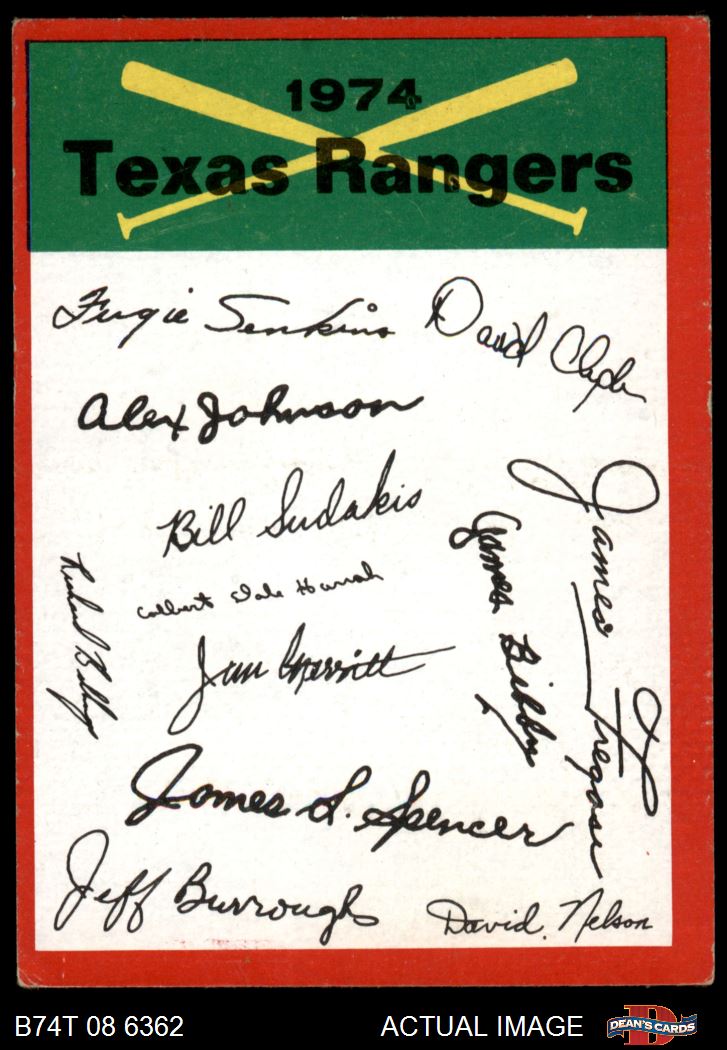 1974
Texas Rangers
Fergie Jenkins
David Clyde
Alex Johnson
Bill Sudakis
James Fregosi
James Bibby
Richard Billings
Colbert Dale Harrah
Jim Merritt
James L. Spencer
Jeff Burroughs
David. Nelson
B74T 08 6362
ACTUAL IMAGE
DEAN'S CARDS